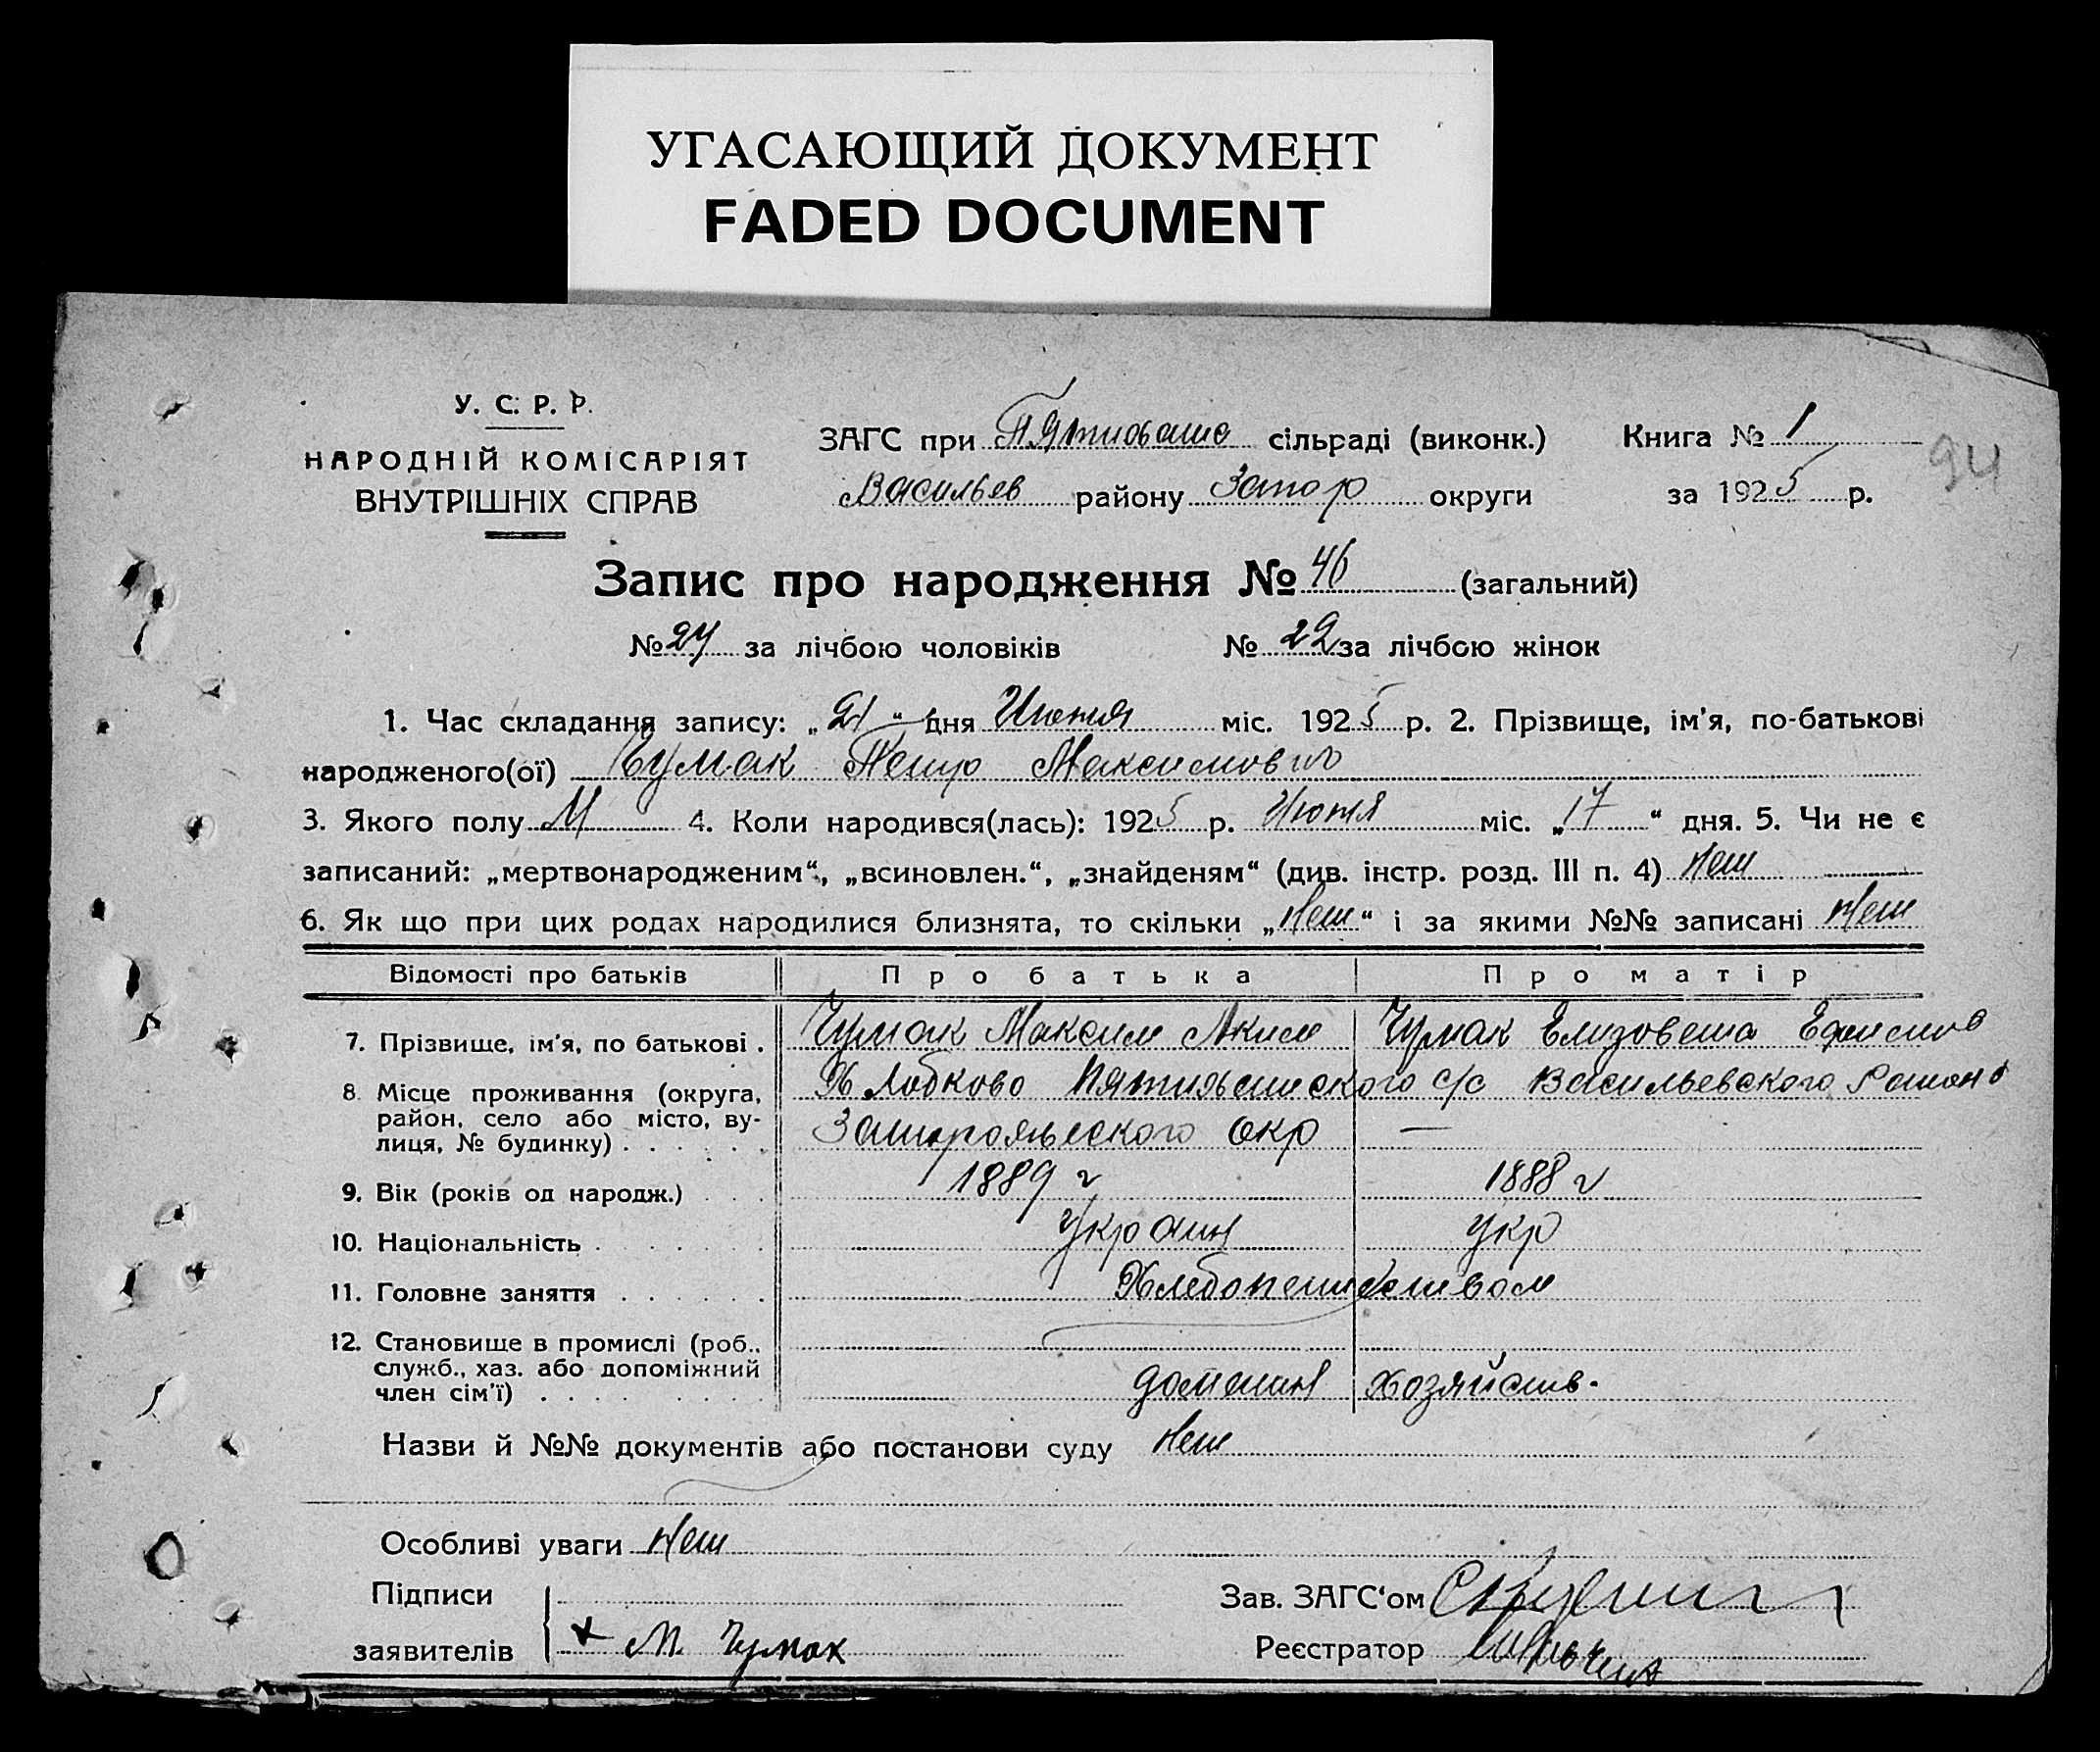 УГАСАЮЩИЙ ДОКУМЕНТ
FADED DOCUMENT
У. С. Р. Р.
НАРОДНІЙ КОМІСАРІЯТ
ВНУТРІШНІХ СПРАВ
ЗАГС при сільраді (виконк.)
Васильев району Запор округи
Книга № 1
за 1925 р.
94
Запис про народження № 46 (загальний)
№ 24 за лічбою чоловіків № 22 за лічбою жінок
1. Час складання запису: „21“ дня міс. 1925 р. 2. Прізвище, ім'я, по-батькові
народженого(ої) Чумак Петро Максимович
3. Якого полу М 4. Коли народився(лась): 1925 р. міс. „17“ дня. 5. Чи не є
записаний: „мертвонародженим“, „всиновлен.“, „знайденям“ (див. інстр. розд. III п. 4) нет
6. Як що при цих родах народилися близнята, то скільки „нет“ і за якими №№ записані нет
Відомості про батьків Про батька Про матір
7. Прізвище, ім'я, по батькові . Чумак Максим Аким Чумак Елизовета Ефимов
8. Місце проживання (округа, район, село або місто, вулиця, № будинку) . . . . . Х Лобково с/с Васильевского Района
Запорожеского окр —
9. Вік (років од народж.) . . . 1889 г 1888 г
10. Національність . . . . . . Украин Укр
11. Головне заняття . . . . . . Хлебопешеством
12. Становище в промислі (роб., служб., хаз. або допоміжний член сім'ї) . . . . . . . . домашн хозяйств.
Назви й №№ документів або постанови суду нет
Особливі уваги нет
Підписи
заявителів + М. Чумак
Зав. ЗАГС'ом
Реєстратор